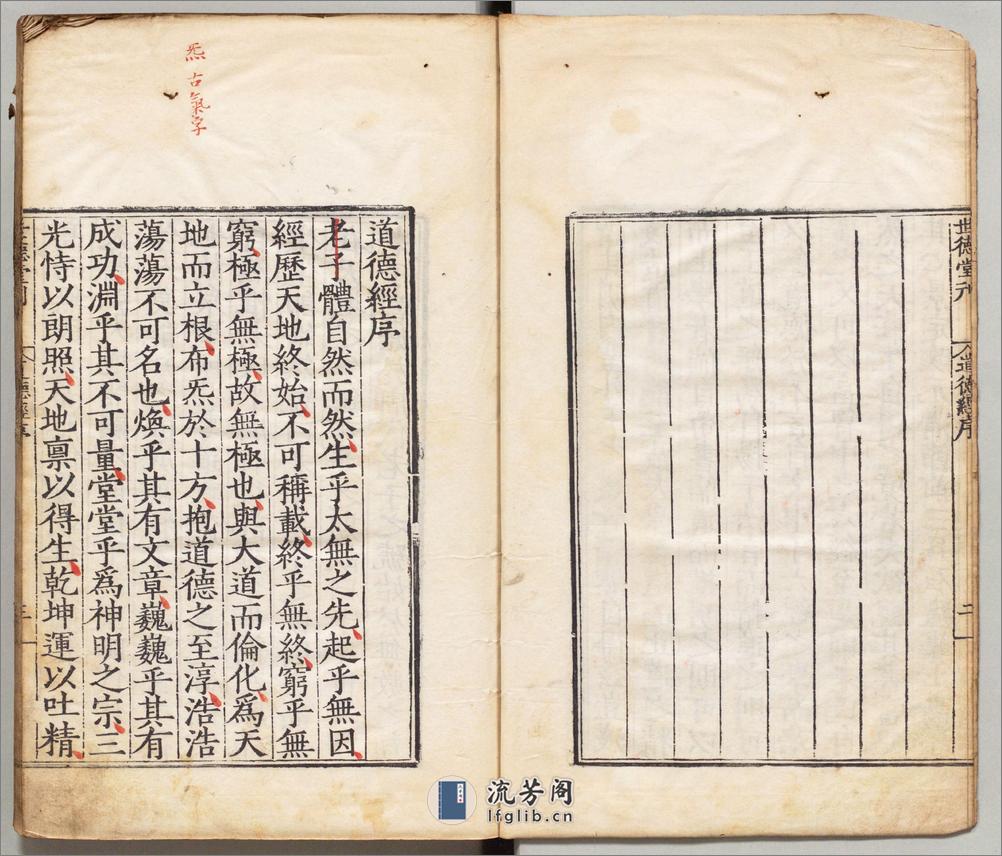 世德堂刊
道德經序
二
炁古氣字
道德經序
老子體自然而然生乎太無之先起乎無因
經歷天地終始不可稱載終乎無終窮乎無
窮極乎無極故無極也與大道而倫化爲天
地而立根布炁於十方抱道德之至淳浩浩
蕩蕩不可名也煥乎其有文章巍巍乎其有
成功淵乎其不可量堂堂乎爲神明之宗三
光恃以朗照天地禀以得生乾坤運以吐精
流芳阁
lfglib.cn